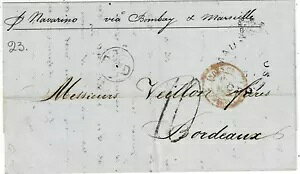 p Navarino via Bombay & Marseille
23.
P.D
Messieurs Veillon frères
10
Bordeaux